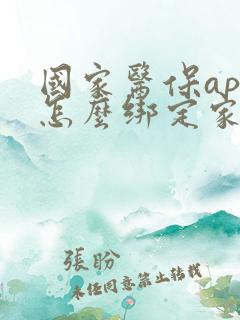 國家醫保ap
怎麼綁定家
張盼
未經同意禁止轉載